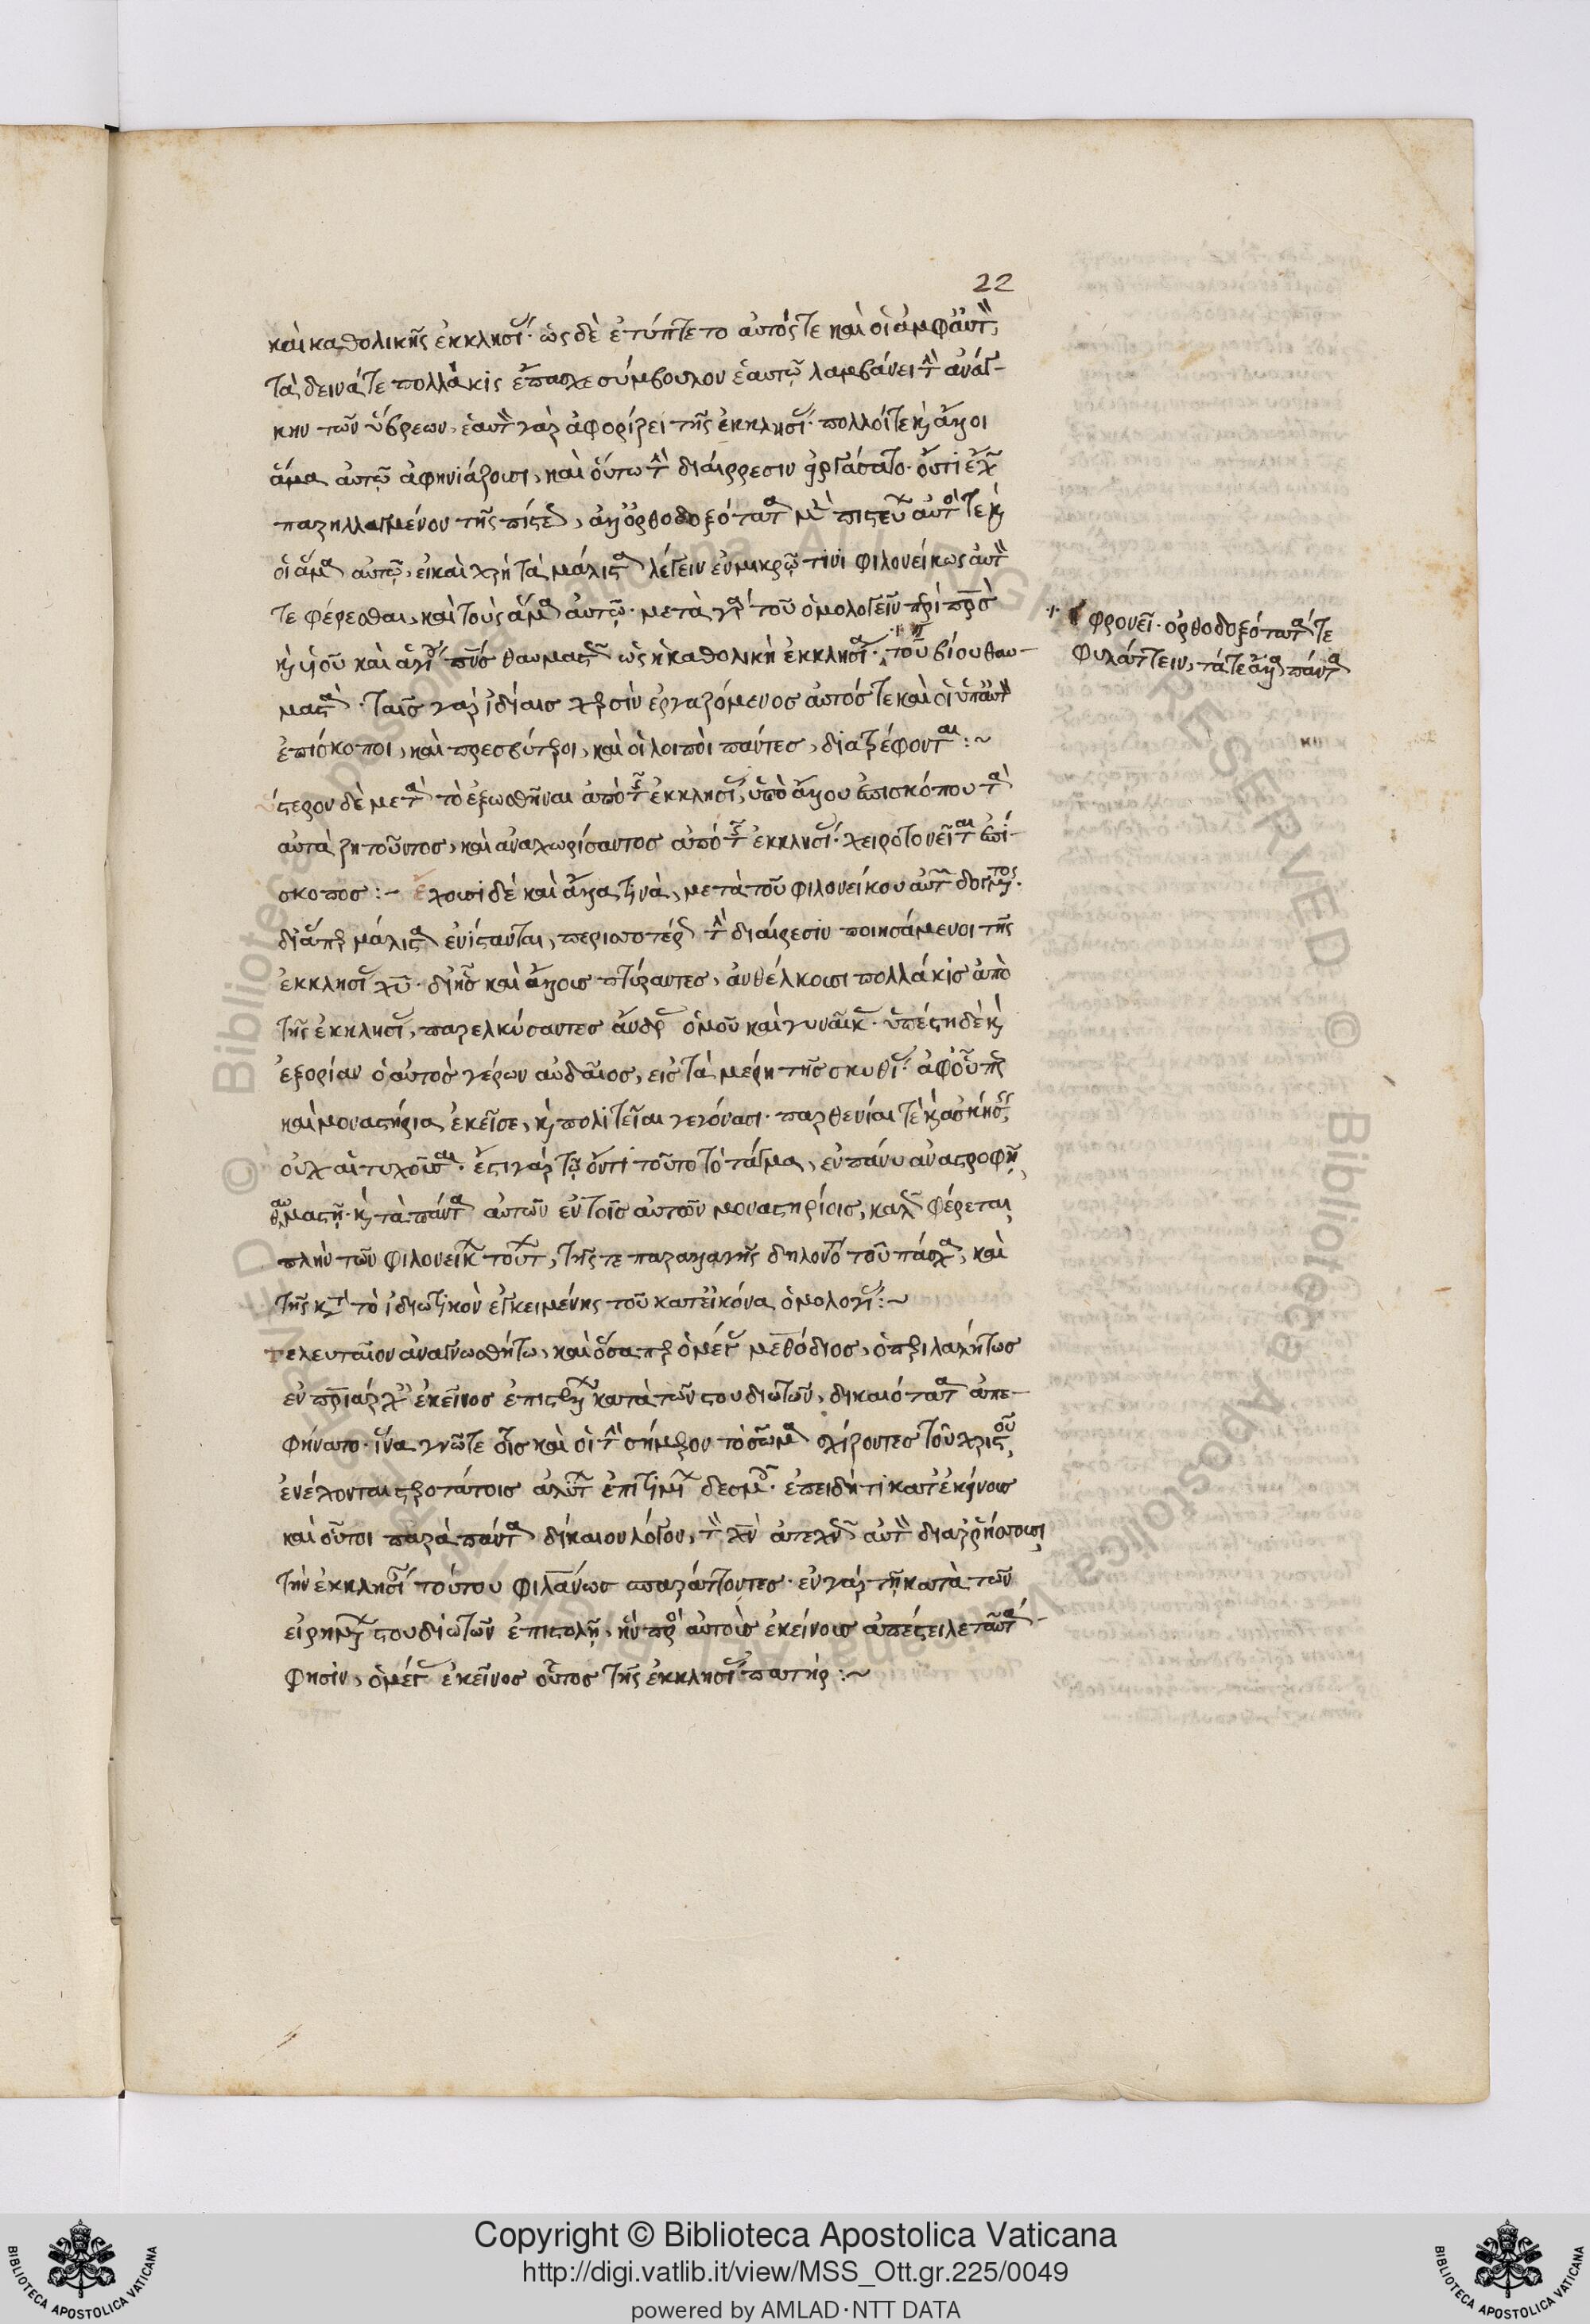 22
καὶ καθολικῆς ἐκκλησί· ὡς δὲ ἐτύπτετο αὐτός τε καὶ οἱ ἀμφ αὐτ,
τὰ δεινά τε πολλάκις ἔπασχε σύμβουλον ἑαυτῷ λαμβάνει τ ἀνάγ-
κην τῶν ὕβρεων, ἑαυτ γαρ ἀφορίζει τῆς ἐκκλησί· πολλοί τε κ ἄλλοι
ἅμα αὐτῷ ἀφηνιάζουσι, καὶ οὕτω τ διαίρρεσιν ἠργάσατο· οὔτι ἐχ
παρηλλαγμένον τῆς πίστε, ἀλλ ὀρθοδοξότατ μ πιστευ αὐτ τε κ
οἱ ἅμα αὐτῷ, εἰ καὶ χρή τὰ μάλιστα λέγειν ἐν μικρῷ τινι φιλονείκως αὐτ
τε φέρεσθαι, καὶ τοὺς ἅμα αὐτῷ· μετὰ γαρ τοῦ ὁμολογεῖν πρι πρσ
κ υἱοῦ καὶ ἁγί πνς θαυμαστ ὡς ἡ καθολικὴ ἐκκλησία· τοῦ βίου θαυ-
μαστ· ταῖς γαρ ἰδίαις χερσὶν ἐργαζόμενος αὐτός τε καὶ οἱ ὑπ αὐτ
ἐπίσκοποι, καὶ πρεσβύτεροι, καὶ οἱ λοιποὶ πάντες, διατρέφονται :~
ὕστερον δὲ μετὰ τὸ ἐξωσθῆναι ἀπὸ τ ἐκκλησί, ὑπὸ ἄλλου ἐπισκόπου τὰ
αὐτὰ ζητοῦντος, καὶ ἀναχωρίσαντος ἀπό τ ἐκκλησί· χειροτονεῖται ἐπί-
σκοπος :- ἔχουσι δὲ καὶ ἄλλα τινὰ, μετὰ τοῦ φιλονείκου αὐτ δογμ τος·
διάπερ μάλιστα ἐνίστανται, περισσοτέρ τ διαίρεσιν ποιησάμενοι τῆς
ἐκκλησί χυ· δι ης καὶ ἄλλους πτύξαντες, ἀνθέλκουσι πολλάκις ἀπὸ
τῆς ἐκκλησί, παρελκύσαντες ἄνδρ ὁμοῦ καὶ γυναῖκ· ὑπέστη δὲ κ
ἐξορίαν ὁ αὐτὸς γέρων αὐδαῖος, εἰς τὰ μέρη τῆς σκυθί· ἀφ οὗπερ
καὶ μοναστήρια ἐκεῖσε, κ πολιτεῖαι γεγόνασι· παρθενίαι τὲ κ ἀσκήσ,
οὐχ αἱ τυχοῦσαι· ἔστι γαρ τῷ ὄντι τοῦτο τὸ τάγμα, ἐν πάνυ ἀναστροφῇ,
θαυμαστῇ· κ τὰ πάντα αὐτῶν ἐν τοῖς αὐτῶν μοναστηρίοις, καλ φέρεται,
πλὴν τῶν φιλονεικ τουτ, τῆς τε παραλλαγῆς δηλονότ τοῦ πάσχα, καὶ
τῆς κτ τὸ ἰδιωτικὸν ἐγκειμένης τοῦ κατ εἰκόνα ὁμολογί :~
τελευταῖον ἀναγνωσθήτω, καὶ ὅσαπερ ὁ μέγ μεθόδιος, ὁ περιλαλήτως
ἐν πριάρχ ἐκεῖνος ἐπιστέλλ κατὰ τῶν στουδιωτῶν, δικαιότατα ἀπε-
φήνατο· ἵνα γνῶτε οἷς καὶ οἱ τ σήμερον τὸ σῶμα σχίζοντες τοῦ χριστοῦ,
ἐνέχονται στερροτάτοις ἀλύτ ἐπιτιμί δεσμ· ἐπειδή τι κατ ἐκείνους
καὶ οὗτοι παρὰ πάντα δίκαιον λόγον, τ χν ἀτεχν αὐτ διαρρήσσουσι,
τὴν ἐκκλησί τούτου φιλανως σπαράττοντες· ἐν γαρ τῇ κατὰ τῶν
εἰρημ στουδιωτῶν ἐπιστολῇ, ἣν πρ αὐτοὺς ἐκείνους ἀπέστειλε ταῦτα
φησὶν, ὁ μέγ ἐκεῖνος οὗτος τῆς ἐκκλησί πατήρ :~
φρονεῖ· ὀρθοδοξότατά τε
φυλάττειν, τά τε ἄλλα πάντα
Copyright © Biblioteca Apostolica Vaticana
http://digi.vatlib.it/view/MSS_Ott.gr.225/0049
powered by AMLAD·NTT DATA
BIBLIOTECA APOSTOLICA VATICANA
BIBLIOTECA APOSTOLICA VATICANA